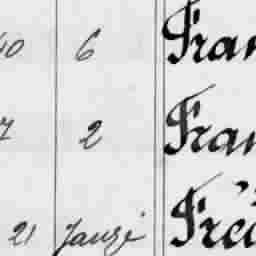 40 6 Fran
7 2 Fran
21 Janvi Fréd